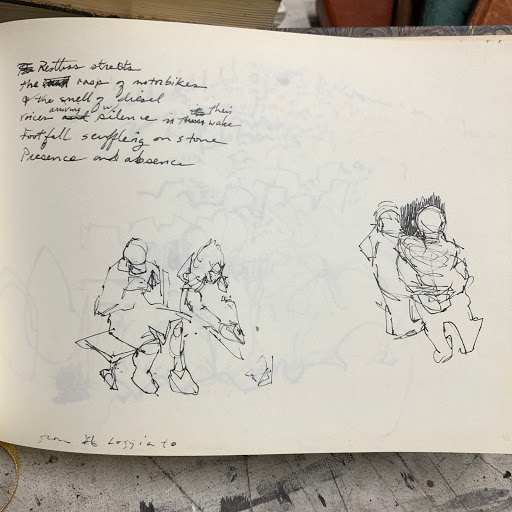 Restless streets
the rasp of motorbikes
& the smell of diesel
voices arriving w/ silence in their wake
Footfall scuffling on stone
Presence and absence
from the Loggiato